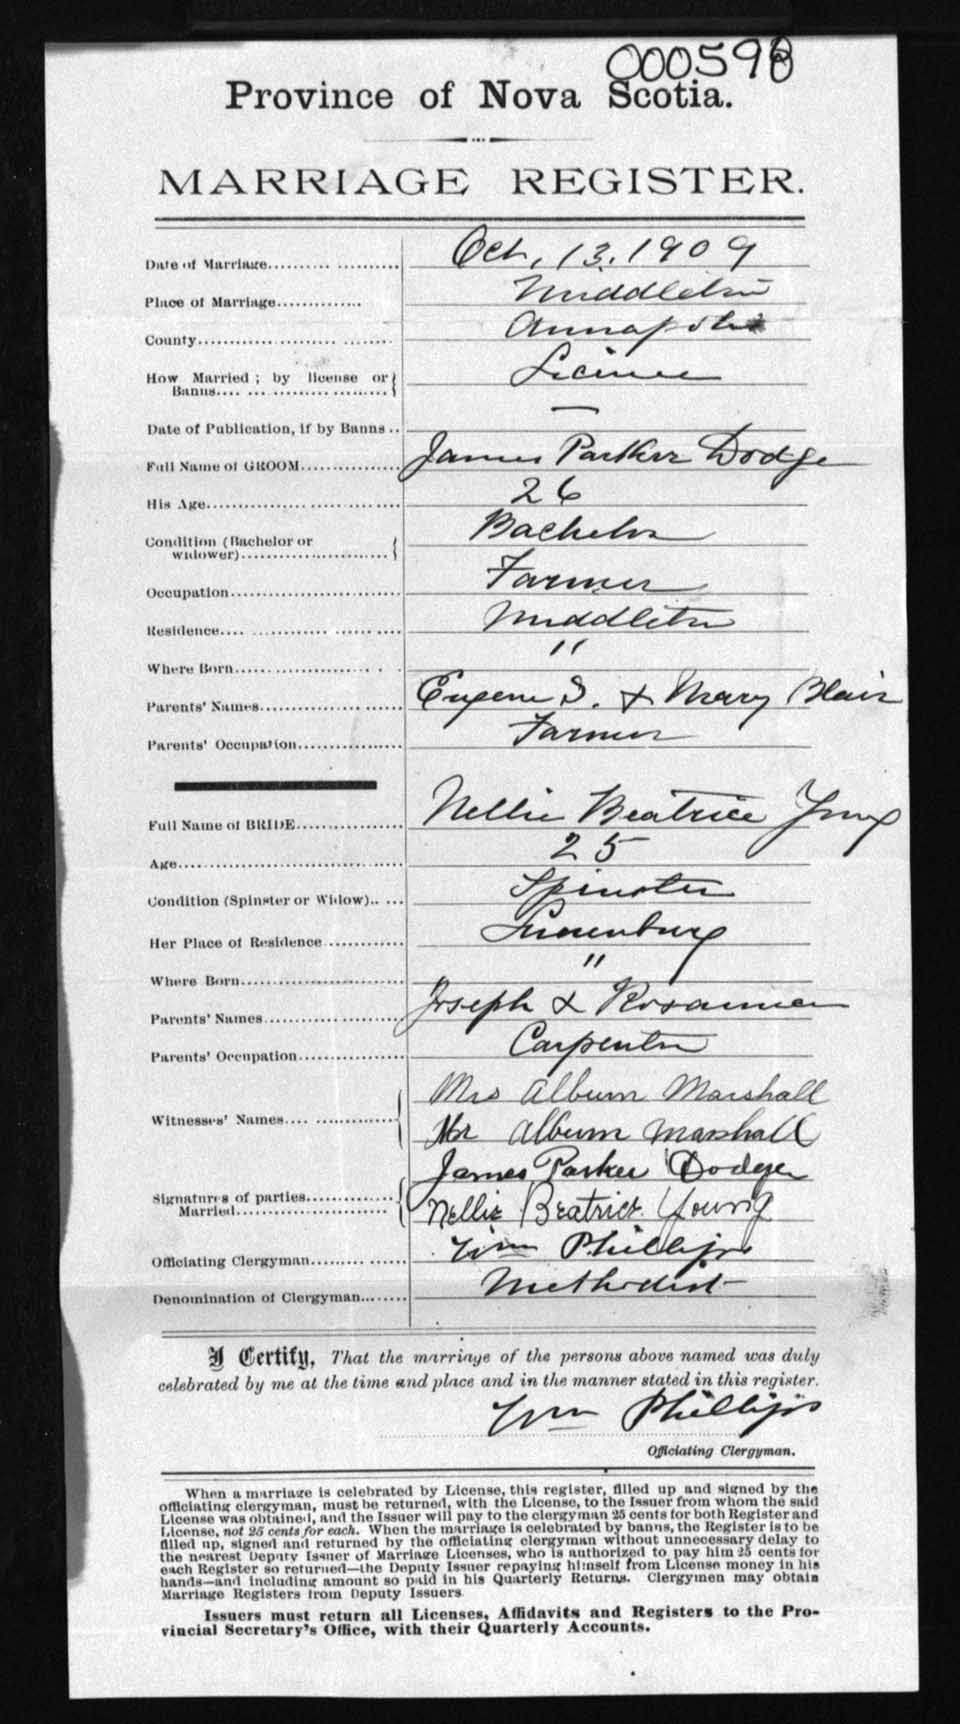 000598
Province of Nova Scotia.
MARRIAGE REGISTER.
Date of Marriage Oct, 13. 1909
Place of Marriage Middleton
County Annapolis
How Married ; by license or License
Banns
Date of Publication, if by Banns —
Full Name of GROOM James Parker Dodge
His Age 26
Condition (Bachelor or Bachelor
widower)
Occupation Farmer
Residence Middleton
Where Born "
Parents' Names Eugene S. & Mary Blair
Parents' Occupation Farmer
Full Name of BRIDE Nellie Beatrice Young
Age 25
Condition (Spinster or Widow) Spinster
Her Place of Residence Lunenburg
Where Born "
Parents' Names Joseph & Rosanna
Parents' Occupation Carpenter
Mrs Album Marshall
Witnesses' Names
Mr Album Marshall
James Parker Dodge
Signatures of parties
Married Nellie Beatrice Young
Officiating Clergyman Wm Phillips
Denomination of Clergyman Methodist
I Certify, That the marriage of the persons above named was duly
celebrated by me at the time and place and in the manner stated in this register.
Wm Phillips
Officiating Clergyman.
When a marriage is celebrated by License, this register, filled up and signed by the
officiating clergyman, must be returned, with the License, to the Issuer from whom the said
License was obtained, and the Issuer will pay to the clergyman 25 cents for both Register and
License, not 25 cents for each. When the marriage is celebrated by banns, the Register is to be
filled up, signed and returned by the officiating clergyman without unnecessary delay to
the nearest Deputy Issuer of Marriage Licenses, who is authorized to pay him 25 cents for
each Register so returned—the Deputy Issuer repaying himself from License money in his
hands—and including amount so paid in his Quarterly Returns. Clergymen may obtain
Marriage Registers from Deputy Issuers
Issuers must return all Licenses, Affidavits and Registers to the Pro-
vincial Secretary's Office, with their Quarterly Accounts.